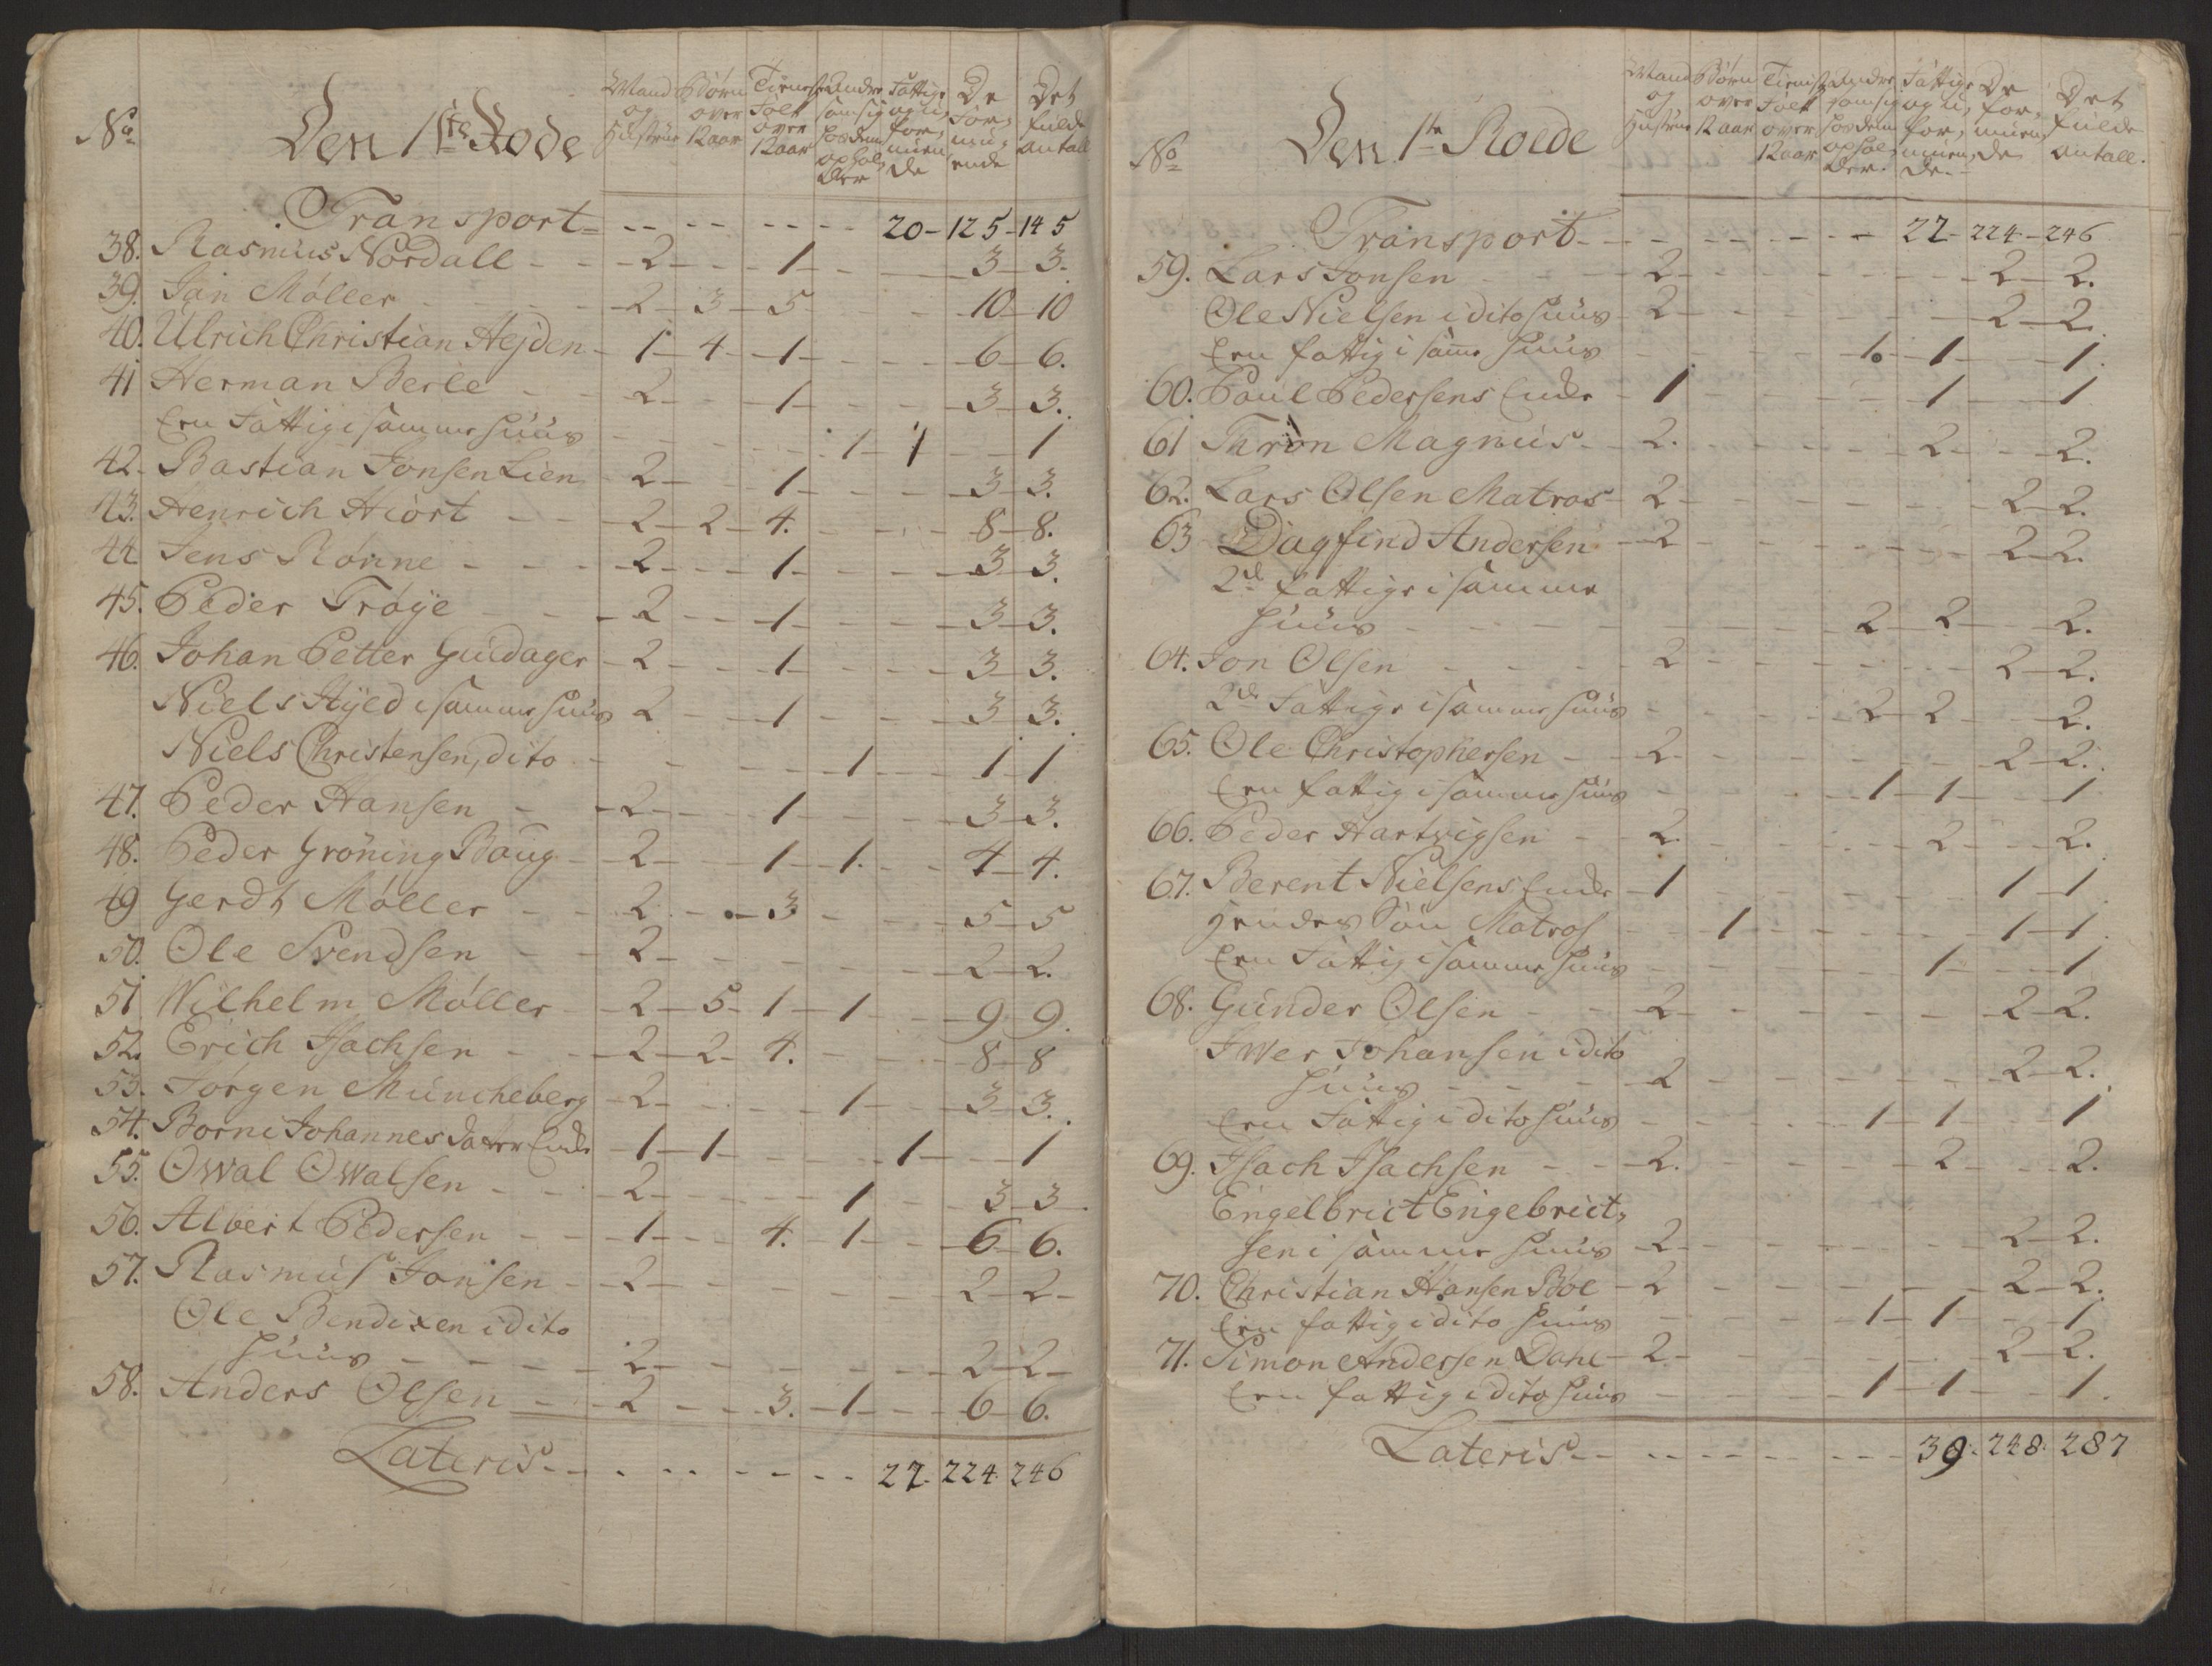 No. Den 1ste Rode
Mand og Hustrue
Børn over 12 aar
Tieneste Folk over 12 aar
Andre som sig hos dem opholder
Fattige og uformuende
De formuende
Det fulde antall
Transport - 20 - 125 - 145
38. Rasmus Nordall - 2 - 1 - 3 - 3.
39. Jan Møller - 2 - 3 - 5 - 10 - 10
40. Ulrich Christian Hejden - 1 - 4 - 1 - 6 - 6.
41 Herman Berle - 2 - 1 - 3 - 3.
Een Fattig i samme Huus - 1 - 1 - 1
42. Bastian Jonsen Lien - 2 - 1 - 3 - 3.
43. Henrich Hiort - 2 - 2 - 4. - 8 - 8.
44 Jens Rønne - 2 - 1 - 3 - 3.
45. Peder Trøye - 2 - 1 - 3 - 3.
46. Johan Petter Guldager - 2 - 1 - 3 - 3.
Niels Hyed i samme Huus 2 - 1 - 3 - 3.
Niels Christensen, dito - 1 - 1 - 1
47. Peder Hansen - 2 - 1 - 3 - 3.
48. Peder Grøning Baug - 2 - 1 - 1. - 4 - 4.
49 Gerdt Møller - 2 - 3 - 5 - 5
50. Ole Svendsen - 2 - 2 - 2.
51 Wilhelm Møller - 2 - 5 - 1 - 1 - 9 - 9.
52. Erich Isachsen - 2 - 2 - 4. - 8 - 8
53. Jørgen Müncheberg - 2 - 1 - 3 - 3.
54. Borni Johannes Enke - 1 - 1 - 1 - 1
55. Owal Owalsen - 2 - 1 - 3 - 3
56. Albert Pedersen - 1 - 4. - 1 - 6 - 6.
57. Rasmus Jonsen - 2 - 2 - 2 -
Ole Bendixen i dito
Huus - 2 - 2 - 2 -
58. Anders Olsen - 2 - 3. - 1 - 6 - 6.
Lateris - 22 - 224 - 246
No. Den 1te Roede
Mand og Hustrue
Børn over 12 aar
Tieneste Folk over 12 aar
Andre som sig hos dem opholder.
Fattige og uformuende.
De formuende
Det fulde antall.
Transport - 22 - 224 - 246
59. Lars Jonsen - 2 - 2 - 2.
Ole Nielsen i dito Huus - 2 - 2 - 2.
Een fattig i samme Huus - 1 - 1 - 1.
60. Poul Pedersens Enke - 1 - 1 - 1
61 Thron Magnus - 2. - 2 - 2.
62. Lars Olsen Matros - 2 - 2 - 2.
63 Dagfind Andersen - 2 - 2 - 2.
2de fattige i samme
Huus - 2 - 2 - 2.
64. Jon Olsen - 2 - 2 - 2.
2de Fattige i samme Huus - 2 - 2 - 2.
65. Ole Christophersen - 2 - 2 - 2.
Een fattig i samme Huus - 1 - 1 - 1
66. Peder Hartvigsen - 2. - 2 - 2.
67. Berent Nielsens Enke - 1 - 1 - 1
Hendes Søn Matros - 1 - 1 - 1.
Een Fattig i samme Huus - 1 - 1
68. Gunder Olsen - 2 - 2 - 2.
Iwer Johansen i dito
Huus - 2 - 2 - 2.
Een Fattig i dito Huus - 1 - 1 - 1
69. Isach Isachsen - 2. - 2 - 2.
Engelbrict Engebrict,
sen i samme Huus - 2 - 2 - 2.
70. Christian Hansen Boe - 2 - 2 - 2.
Een fattig i dito Huus - 1 - 1 - 1
71. Simon Andersen Dahl - 2 - 2 - 2.
Een fattig i dito Huus - 1 - 1 - 1.
Lateris - 39 - 248 - 287